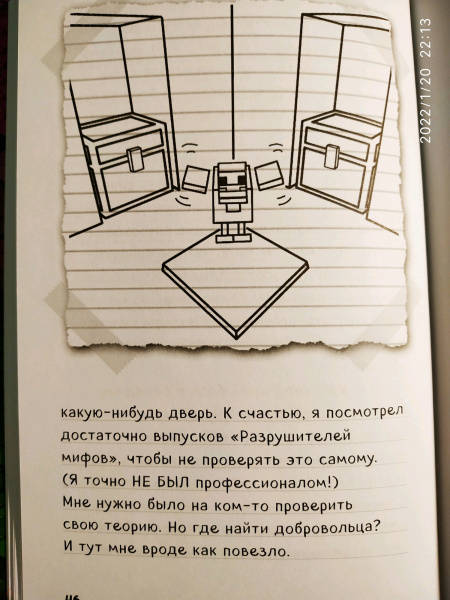 2022/1/20 22:13
какую-нибудь дверь. К счастью, я посмотрел
достаточно выпусков «Разрушителей
мифов», чтобы не проверять это самому.
(Я точно НЕ БЫЛ профессионалом!)
Мне нужно было на ком-то проверить
свою теорию. Но где найти добровольца?
И тут мне вроде как повезло.